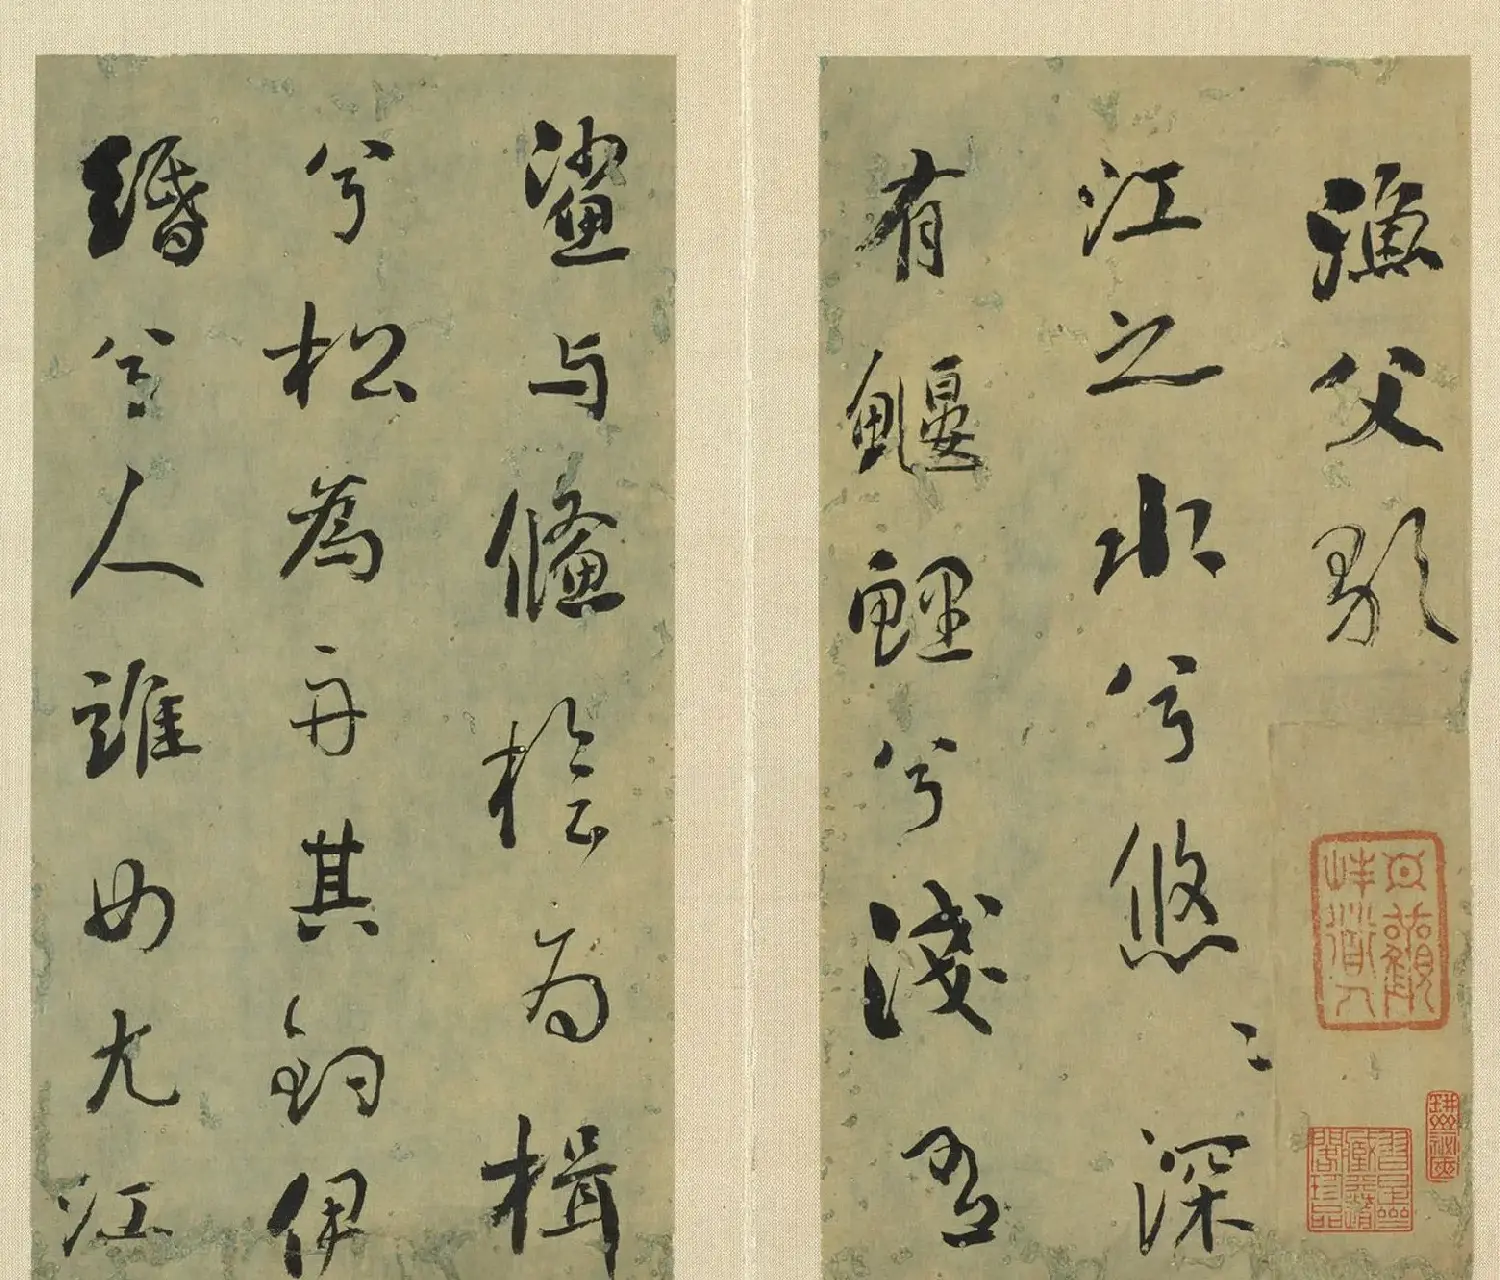 漁父歌
江之水兮悠〻深
有鰋鯉兮淺有
鯊与鯈桧為楫
兮松為舟其釣伊
緡兮人誰女尤江